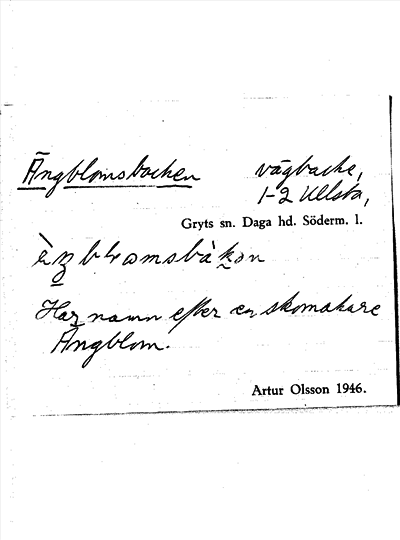 Ängblomsbacken vägbacke,
1-2 Ullsta,
Gryts sn. Daga hd. Söderm. l.
Har namn efter en skomakare
Ängblom.
Artur Olsson 1946.